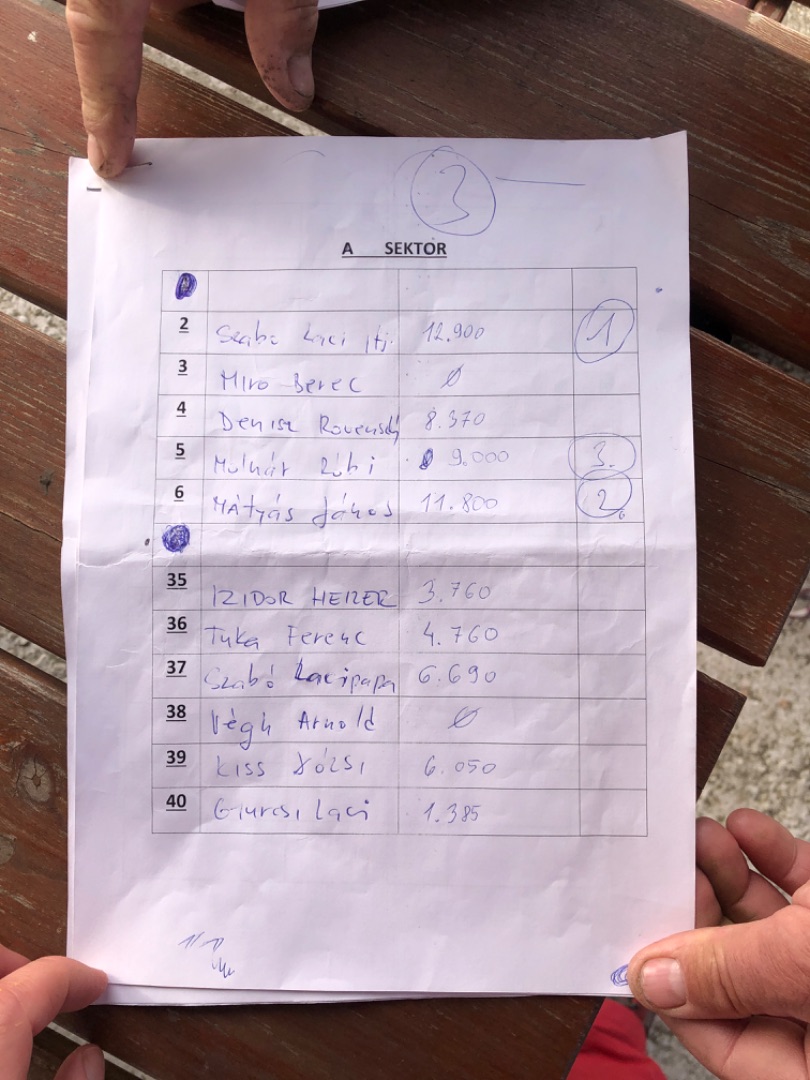 3
A SEKTOR
2 Szabo Laci ifj. 12.900 1
3 Miro Berec Ø
4 Denisz Rovenský 8.370
5 Molnár Robi 9.000 3.
6 Mátyás János 11.800 2
35 IZIDOR HERER 3.760
36 Tuka Ferenc 4.760
37 Szabó Lacipapa 6.690
38 Végh Arnold Ø
39 KISS Józsi 6.050
40 Gyurcsi Laci 1.385